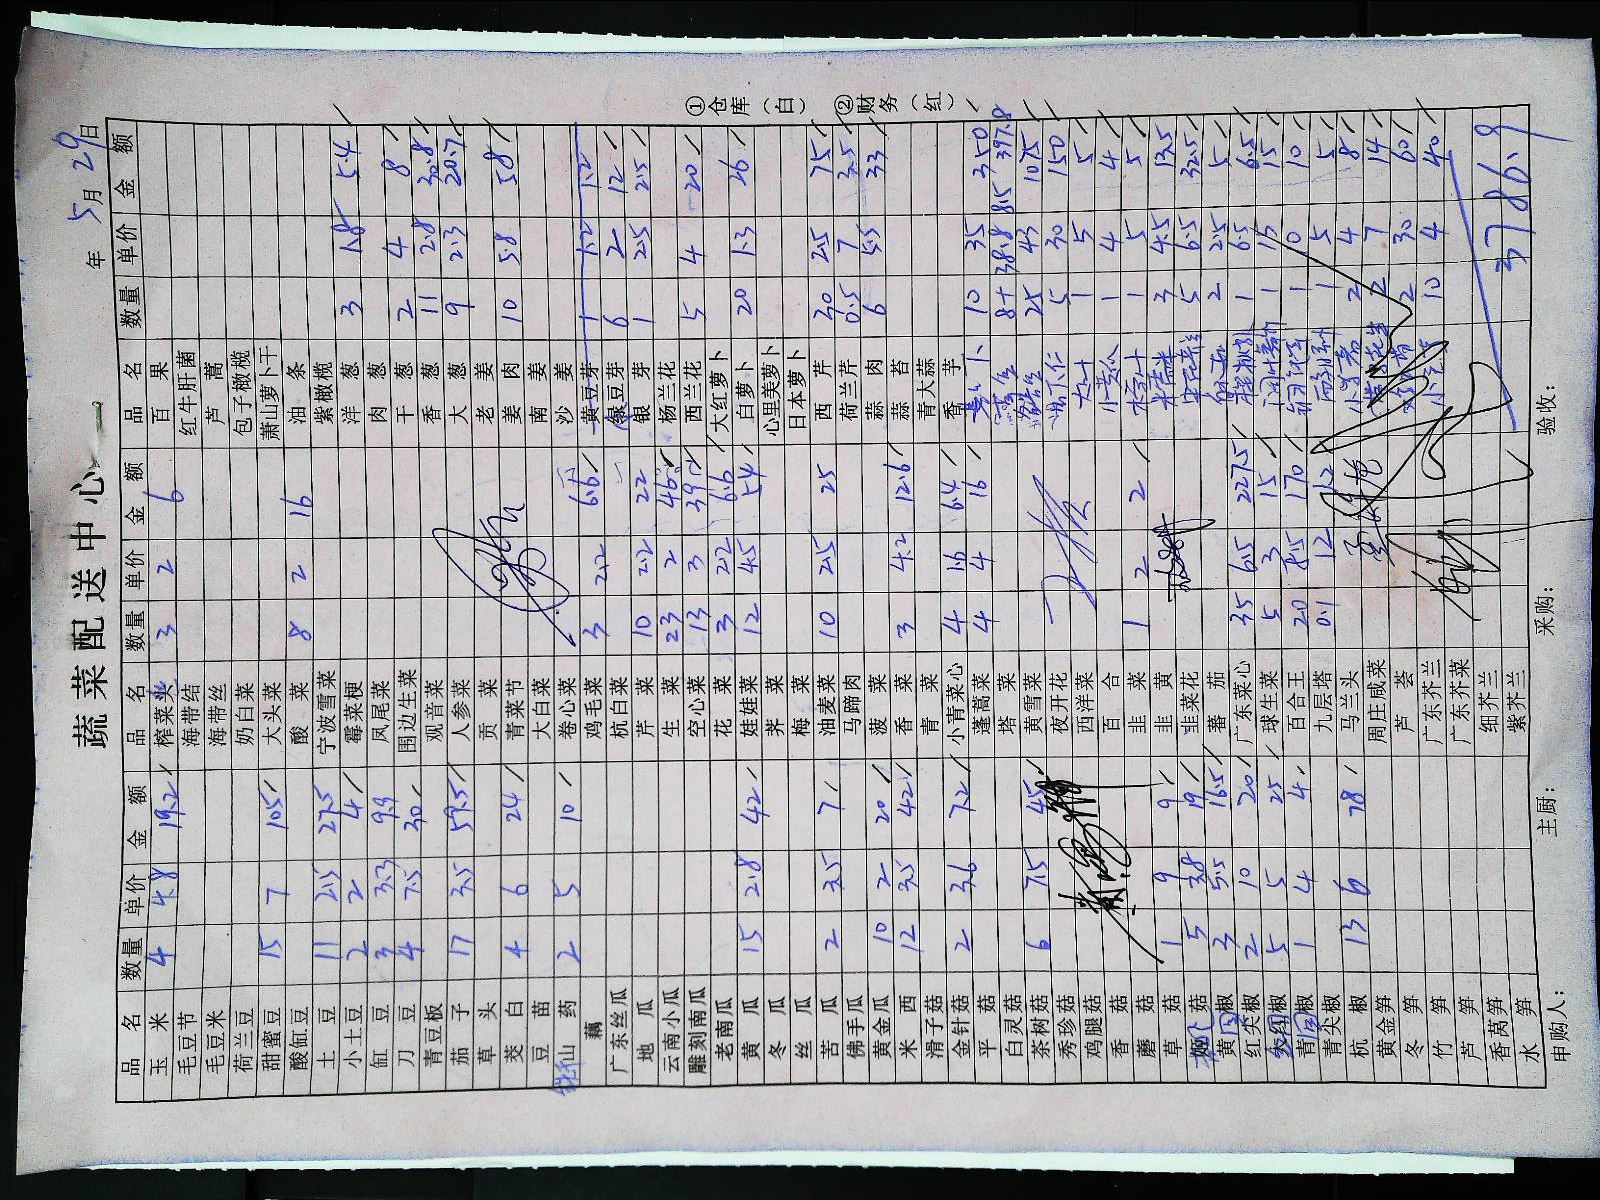 蔬菜配送中心
年 5月 29日
品名 数量 单价 金额 品名 数量 单价 金额 品名 数量 单价 金额
玉米 4 4.8 19.2 榨菜头 3 2 6 百果
毛豆节 海带结 红牛肝菌
毛豆米 海带丝 芦蒿
荷兰豆 奶白菜 包子橄榄
甜蜜豆 15 7 105 大头菜 萧山萝卜干
酸缸豆 酸菜 8 2 16 油条
土豆 11 2.5 27.5 宁波雪菜 紫橄榄
小土豆 2 2 4 霉菜梗 洋葱 3 1.8 5.4
缸豆 3 3.3 9.9 凤尾菜 肉葱
刀豆 4 7.5 30 围边生菜 干葱 2 4 8
青豆板 观音菜 香葱 11 2.8 30.8
茄子 17 3.5 59.5 人参菜 大葱 9 2.3 20.7
草头 贡菜 老姜
茭白 4 6 24 青菜节 姜肉 10 5.8 58
豆苗 大白菜 南姜
山药 2 5 10 卷心菜 沙姜
藕 鸡毛菜 3 2.2 6.6 黄豆芽 1 1.2 1.2
广东丝瓜 杭白菜 绿豆芽 6 2 12
地瓜 芹菜 10 2.2 22 银芽 1 2.5 2.5
云南小瓜 生菜 23 2 46 杨兰花
雕刻南瓜 空心菜 13 3 39 西兰花 5 4 20
老南瓜 花菜 3 2.2 6.6 大红萝卜
黄瓜 15 2.8 42 娃娃菜 12 4.5 54 白萝卜 20 1.3 26
冬瓜 荠菜 心里美萝卜
丝瓜 梅菜 日本萝卜
苦瓜 2 3.5 7 油麦菜 10 2.5 25 西芹 30 2.5 75
佛手瓜 马蹄肉 荷兰芹 0.5 7 3.5
黄金瓜 10 2 20 菠菜 蒜肉 6 5.5 33
米西 12 3.5 42 香菜 3 4.2 12.6 蒜苔
滑子菇 青菜 青大蒜
金针菇 2 3.6 7.2 小青菜心 4 1.6 6.4 香芋
平菇 蓬蒿菜 4 4 16 10 35 350
白灵菇 塔菜 38.8 397.8
茶树菇 6 7.5 45 黄雪菜 25 43 1075
秀珍菇 夜开花 5 30 150
鸡腿菇 西洋菜 1 5 5
香菇 百合 1 4 4
蘑菇 韭菜 1 2 2 1 5 5
草菇 1 9 9 韭黄 3 4.5 13.5
菇 5 3.8 19 韭菜花 5 6.5 32.5
黄圆椒 3 5.5 16.5 蕃茄 2 2.5 5
红尖椒 2 10 20 广东菜心 35 6.5 227.5 1 6.5 6.5
红圆椒 5 5 25 球生菜 5 3 15 1 15 15
青圆椒 1 4 4 百合王 20 8.5 170 1 10 10
青尖椒 九层塔 0.1 12 1.2 1 5 5
杭椒 13 6 78 马兰头 2 4 8
黄金笋 周庄咸菜 2 7 14
冬笋 芦荟 2 30 60
竹笋 广东芥兰 10 4 40
芦笋 广东芥菜
香莴笋 细芥兰
水笋 紫芥兰 3786.9
申购人： 主厨： 采购： 验收：
①仓库（白） ②财务（红）